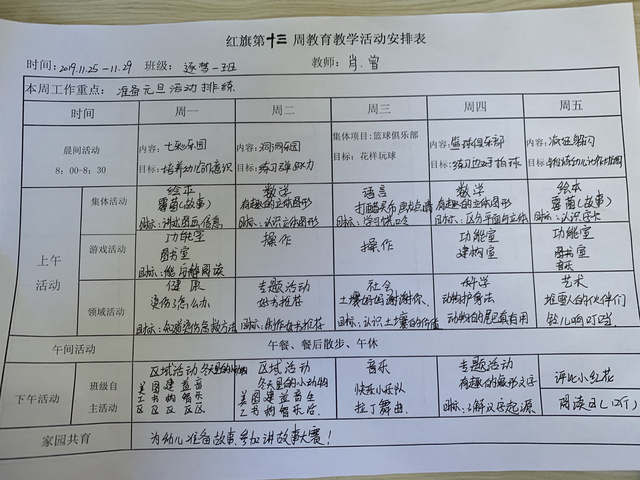 红旗第十三周教育教学活动安排表
时间：2019.11.25-11.29 班级：逐梦一班 教师：肖、曾
本周工作重点：准备元旦活动排练
时间 周一 周二 周三 周四 周五
晨间活动
8：00-8：30
内容：七彩乐园
目标：培养幼儿
内容：洞洞乐园
目标：练习弹跳力
集体项目：篮球俱乐部
目标：花样玩球
内容：篮球俱乐部
目标：练习边走边拍球
内容：疯狂
目标：
上午
活动
集体活动
绘本
（故事）
目标：讲述图画信息
数学
有趣的立体图形
目标：认识立体图形
语言
打醋买布
目标：学习绕口令
数学
有趣的立体图形
目标：区分平面与立体
绘本
（故事）
目标：认识
游戏活动
功能室
图书室
目标：能理解阅读
操作
操作
功能室
建构室
功能室
图书室
音乐
领域活动
健康
烫伤了怎么办
目标：知道烫伤急救方法
专题活动
好书推荐
目标：制作好书推荐
社会
土壤的妈谢谢你、
目标：认识土壤的价值
科学
动物护身法
动物的尾巴真有用
艺术
堆雪人的伙伴们
铃儿响叮当
午间活动 午餐、餐后散步、午休
下午活动
班级自
主活动
区域活动 冬天里的动物
美图建益音
工书构智乐
区区区区区
区域活动
冬天里的小动物
美图建益音生
工书构智乐活
音乐
快乐小乐队
拉丁舞曲
专题活动
有趣的象形文字
目标：了解汉字起源
评比小红花
阅读区（12斤）
家园共育 为幼儿准备故事，参加讲故事大赛！